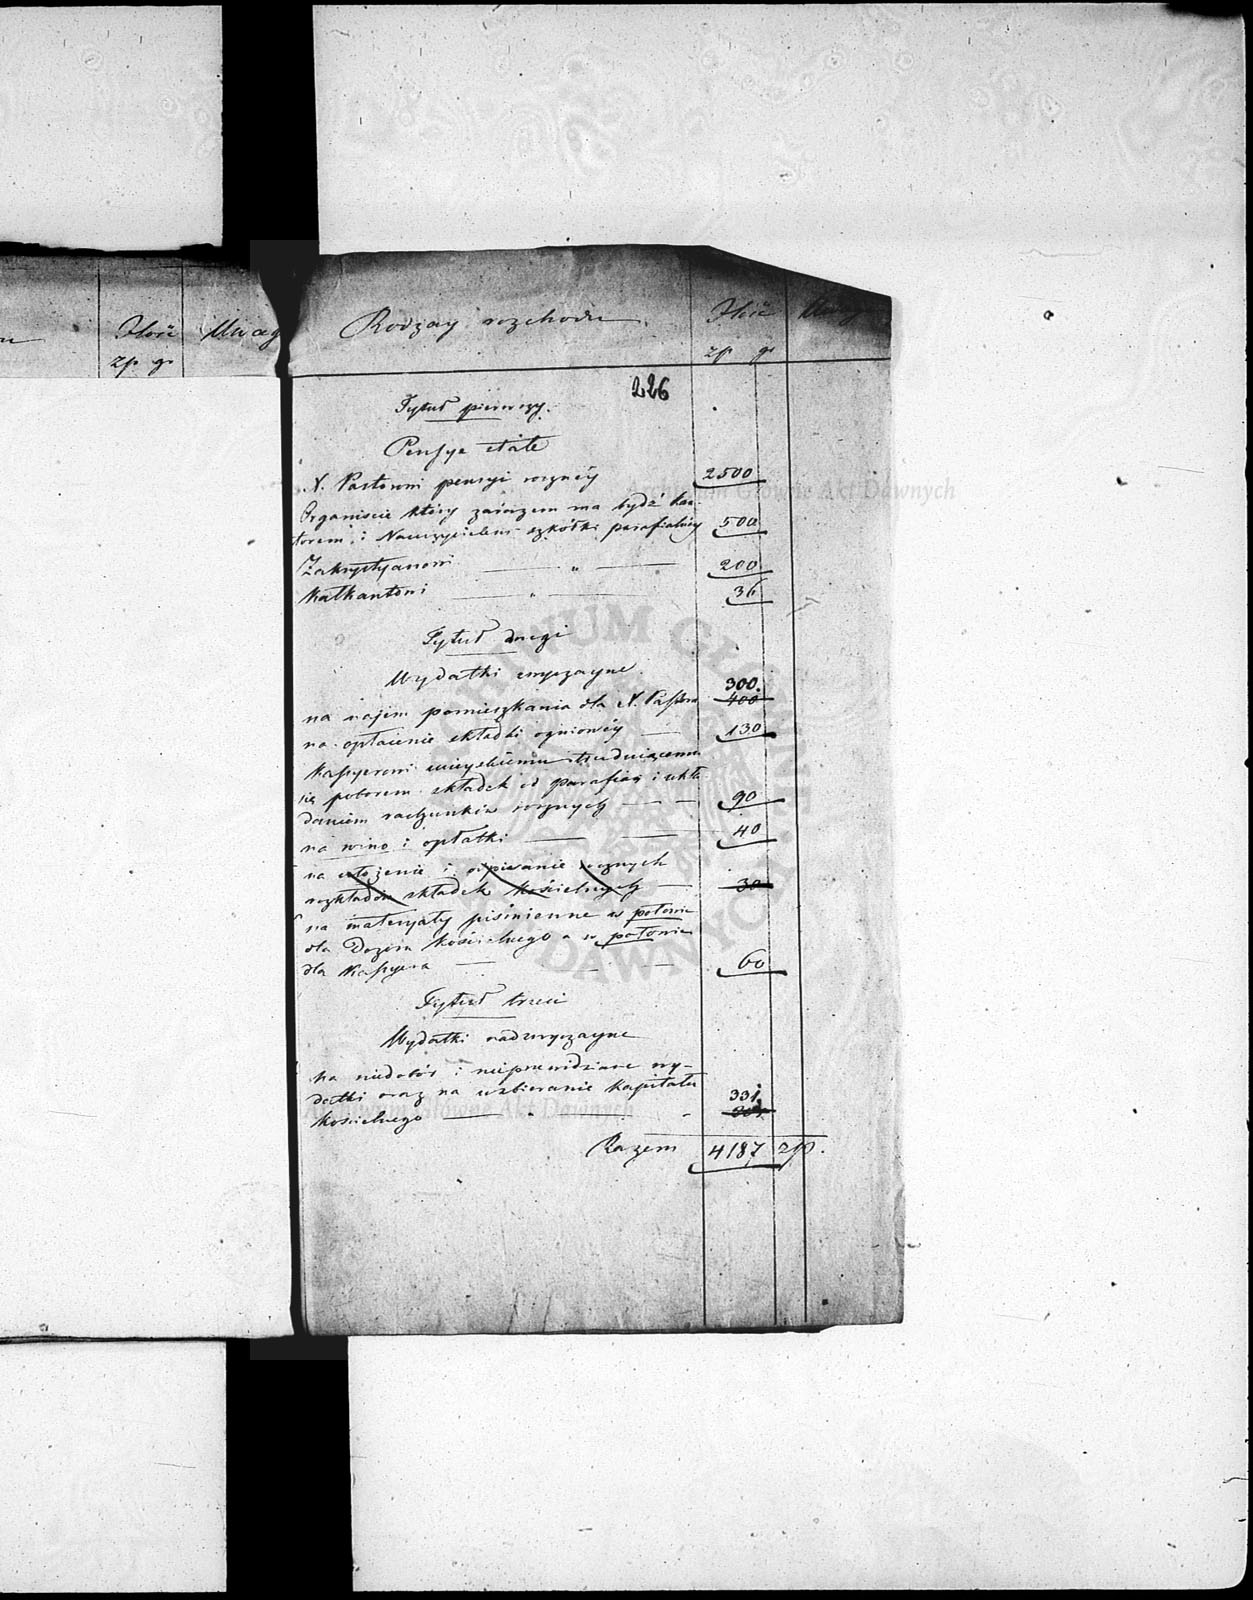 Ilość
Uwag
zp gr
Rodzay rozchodu
Ilość
Uwagi
zp gr
226
Tytuł pierwszy.
Pensye stałe
X. Pastorowi pensyi roczney 2500
Organiście który zarazem ma bydź kan-
torem i Nauczycielem szkółki parafialney 500
Zakrystyanowi — „ — 200
Kalkantowi — „ — 36
Tytuł drugi
Wydatki zwyczayne
300.
na najem pomieszkania dla X. Pastora 400
na opłacenie składki ogniowéy — 130
Kassyerowi mieyskiemu trudniącemu
się poborem składek od parafian i ukła
daniem rachunków rocznych — — 90
na wino i opłatki — — 40
na ułożenie i opisanie rocznych
rozkładów składek kościelnych — 30
na materyały piśmienne w połowie
dla Dozoru kościelnego a w połowie
dla Kassyera — — — 60
Tytuł trzeci
Wydatki nadzwyczayne
Na niedobór i nieprzewidziane wy-
datki oraz na uzbieranie kapitału
kościelnego — „ — 331
Razem 4187 złp.
Archiwum Główne Akt Dawnych
ARCHIWUM GŁÓWNE AKT DAWNYCH
Archiwum Główne Akt Dawnych